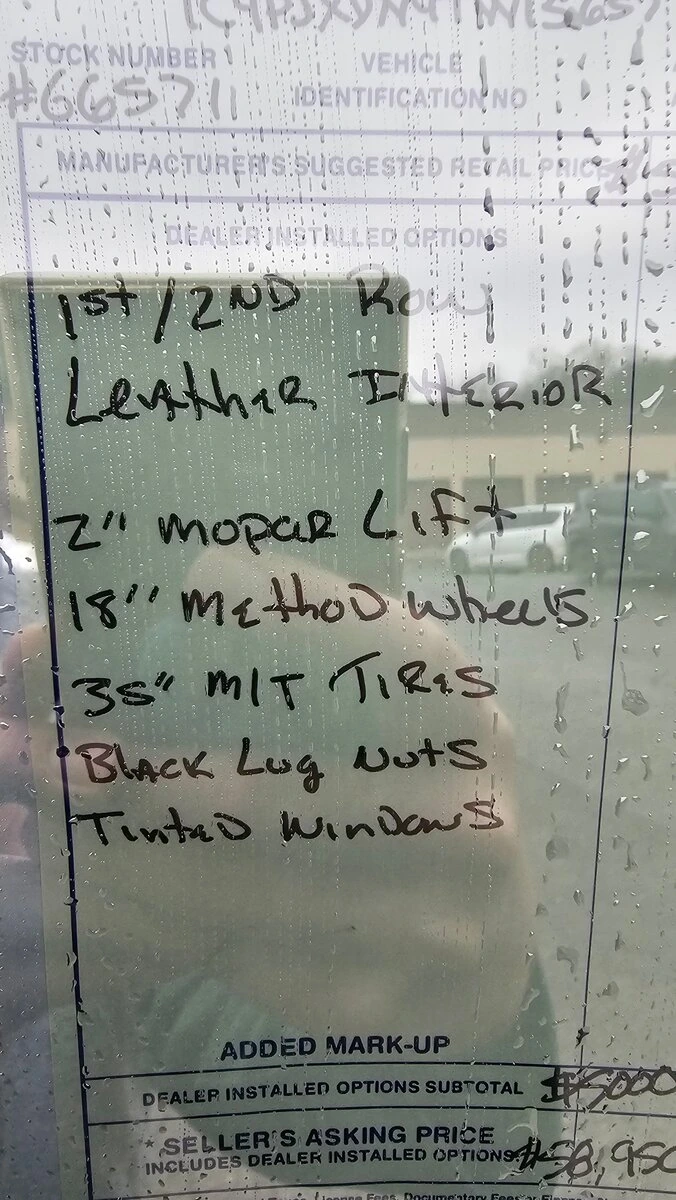 STOCK NUMBER
#66571
VEHICLE
IDENTIFICATION NO
MANUFACTURER'S SUGGESTED RETAIL PRICE
DEALER INSTALLED OPTIONS
1st/2ND Row
Leather Interior
2" mopar Lift
18" Method wheels
35" M/T Tires
Black Lug Nuts
Tinted Windows
ADDED MARK-UP
DEALER INSTALLED OPTIONS SUBTOTAL $5000
* SELLER'S ASKING PRICE
INCLUDES DEALER INSTALLED OPTIONS $58,950
License Fees, Documentary Fees or